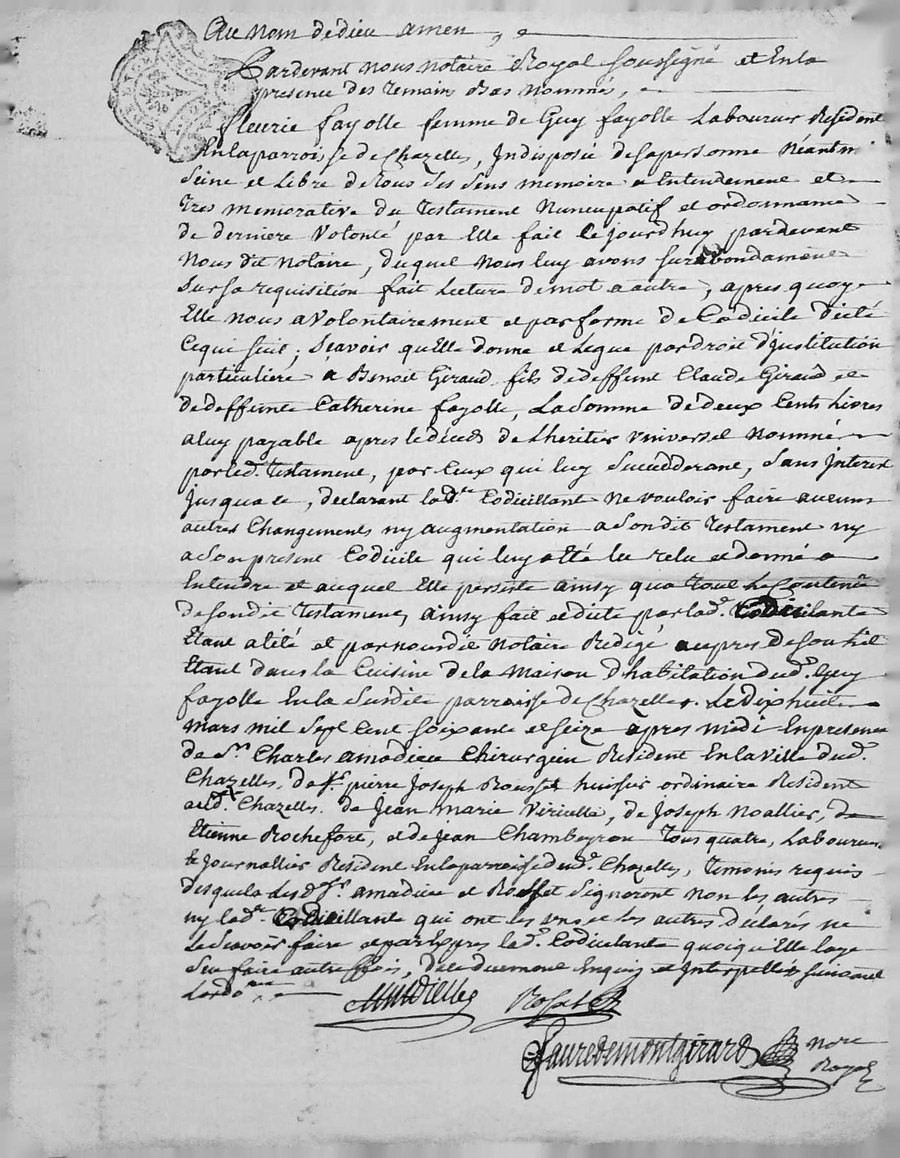 Au nom de dieu amen,
Pardevant nous notaire Royal soussigné et Enla
presence des temoins Bas nommés,
fleurie fayolle femme de Guy fayolle Laboureur Resident
Enlaparroisse de Chazelles, Indisposée desapersonne Néantm
Seine et Libre detous Ses Sens memoire et Entendement et
tres memorative du testament Nuncupatif et ordonnance
de derniere Volonté par Elle fait Cejourdhuy pardevant
Nous dit notaire, duquel Nous luy avons surabondament
Sur sa requisition fait Lecture demot aautre, apres quoy
Elle nous aVolontairement et par forme de Codicile dicté
Cequi suit; Sçavoir quElle donne et Legue par droit d'institution
particuliere a Benoit Giraud fils de deffunt Claude Giraud et
de deffunte Catherine fayolle, LaSomme dedeux Cents Livres
aluy payable apres ledécés de Lheritier Universel Nommé
par led. testament, par Ceux qui luy Succedderont, Sans Interet
Jusqua ce, declarant lad.te Codicillante ne vouloir faire aucuns
autres Changements ny augmentation aSondit testament ny
aSon present Codicile qui luy aEté lu relu et donné a
Entendre et auquel Elle persiste ainsy qua tout Le Contenu
desondit testament, ainsy fait et dicté par lad.e Codicilante
Etant alité et par nousdit Notaire Redigé aupres deson Lit
Etant dans la Cuisine dela maison d'habitation dud. Guy
fayolle Enla Susdite parroisse de Chazelles. Le Dix huit
mars mil Sept Cent Soixante et Seize apres midi En presence
de Sr. Charles amadieu Chirurgien Resident Enlaville dud.
Chazelles, de Sr. pierre Joseph Rousset huissier ordinaire Resident
aud. Chazelles. de Jean marie Viricelle, de Joseph Noallier, de
Etienne Rochefort, et de Jean Chambeyron tous quatre, Laboureurs
& Journallier Resident Enlaparroisse dud. Chazelles, temoins requis
desquels Les d. Srs. amadieu et Rosset Signeront non les autres
ny lad.e Codicillante qui ont les uns et les autres déclarés ne
Le Scavoir faire et par Expres lad.e Codicilante quoiqu'Elle laye
Sçu faire autre ffois, de ce duement Enquis et Interpellés suivant
Lordo.nce
Rosset
fauredemontgirard Nore
Royal